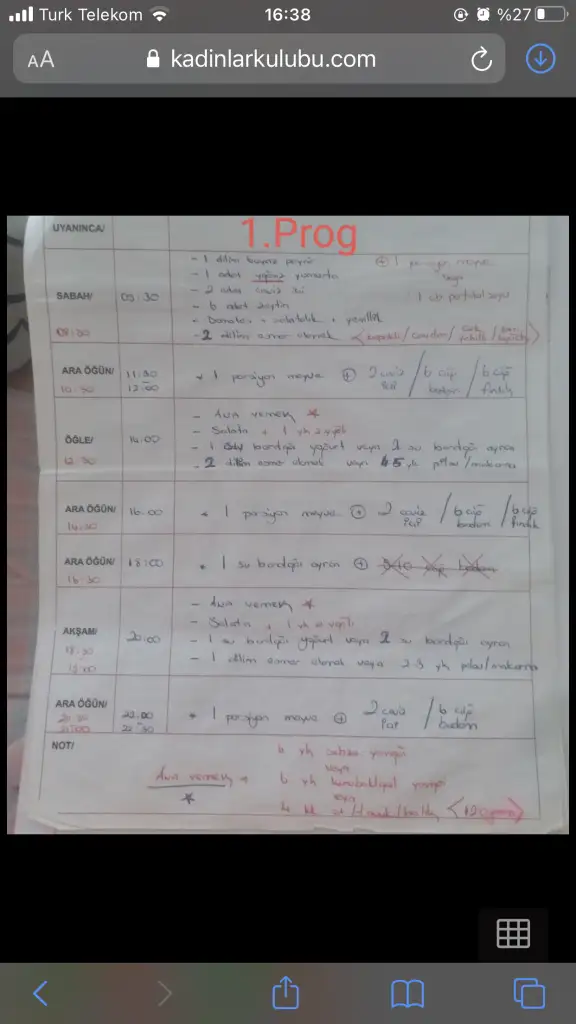 Turk Telekom 16:38 %27
AA kadinlarkulubu.com
1.Prog
UYANINCA/
SABAH/ 09:30
08:30
- 1 dilim beyaz peynir
- 1 adet yağsız yumurta
- 2 adet ceviz içi
- 6 adet zeytin
- Domates + salatalık + yeşillik
- 2 dilim esmer ekmek
+ 1 porsiyon meyve
veya
1 sb portakal suyu
ARA ÖĞÜN/ 11:30
10:30 12:00
1 porsiyon meyve + 2 ceviz / 6 çiğ badem / 6 çiğ fındık
ÖĞLE/ 14:00
12:30
- Ana yemek *
- Salata + 1 yk z.yağlı
- 1 su bardağı yoğurt veya 2 su bardağı ayran
- 2 dilim esmer ekmek veya 4-5 yk pilav/makarna
ARA ÖĞÜN/ 16:00
14:30
1 porsiyon meyve + 2 ceviz / 6 çiğ badem / 6 çiğ fındık
ARA ÖĞÜN/ 18:00
16:30
1 su bardağı ayran +
AKŞAM/ 20:00
18:30
19:00
- Ana yemek *
- Salata + 1 yk z.yağlı
- 1 su bardağı yoğurt veya 2 su bardağı ayran
- 1 dilim esmer ekmek veya 2-3 yk pilav/makarna
ARA ÖĞÜN/ 22:00
20:30 22:30
21:00
1 porsiyon meyve + 2 ceviz / 6 çiğ badem
NOT/
Ana yemek →
*
6 yk sebze yemeği
veya
6 yk kurubaklagil yemeği
veya